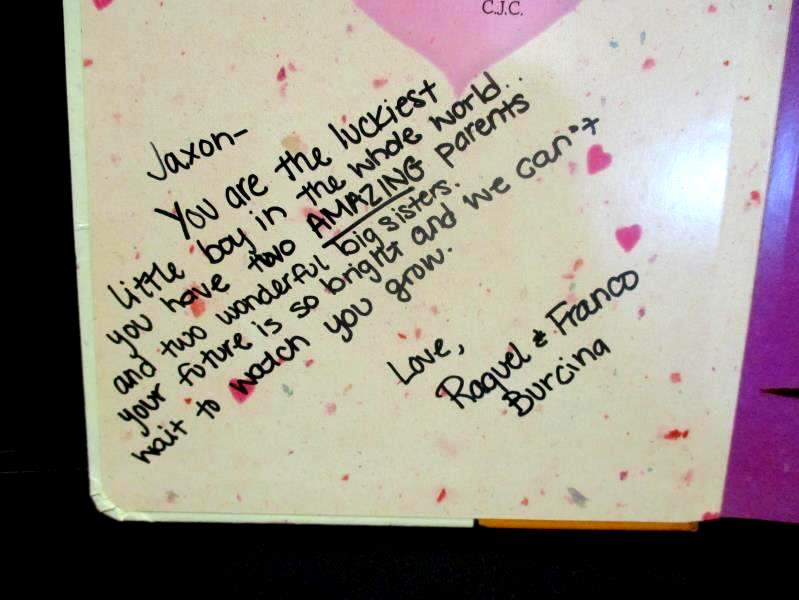 C.J.C.
Jaxon-
You are the luckiest
little boy in the whole world..
you have two AMAZING parents
and two wonderful big sisters.
your future is so bright and we can't
wait to watch you grow.
Love,
Raquel & Franco
Burcina